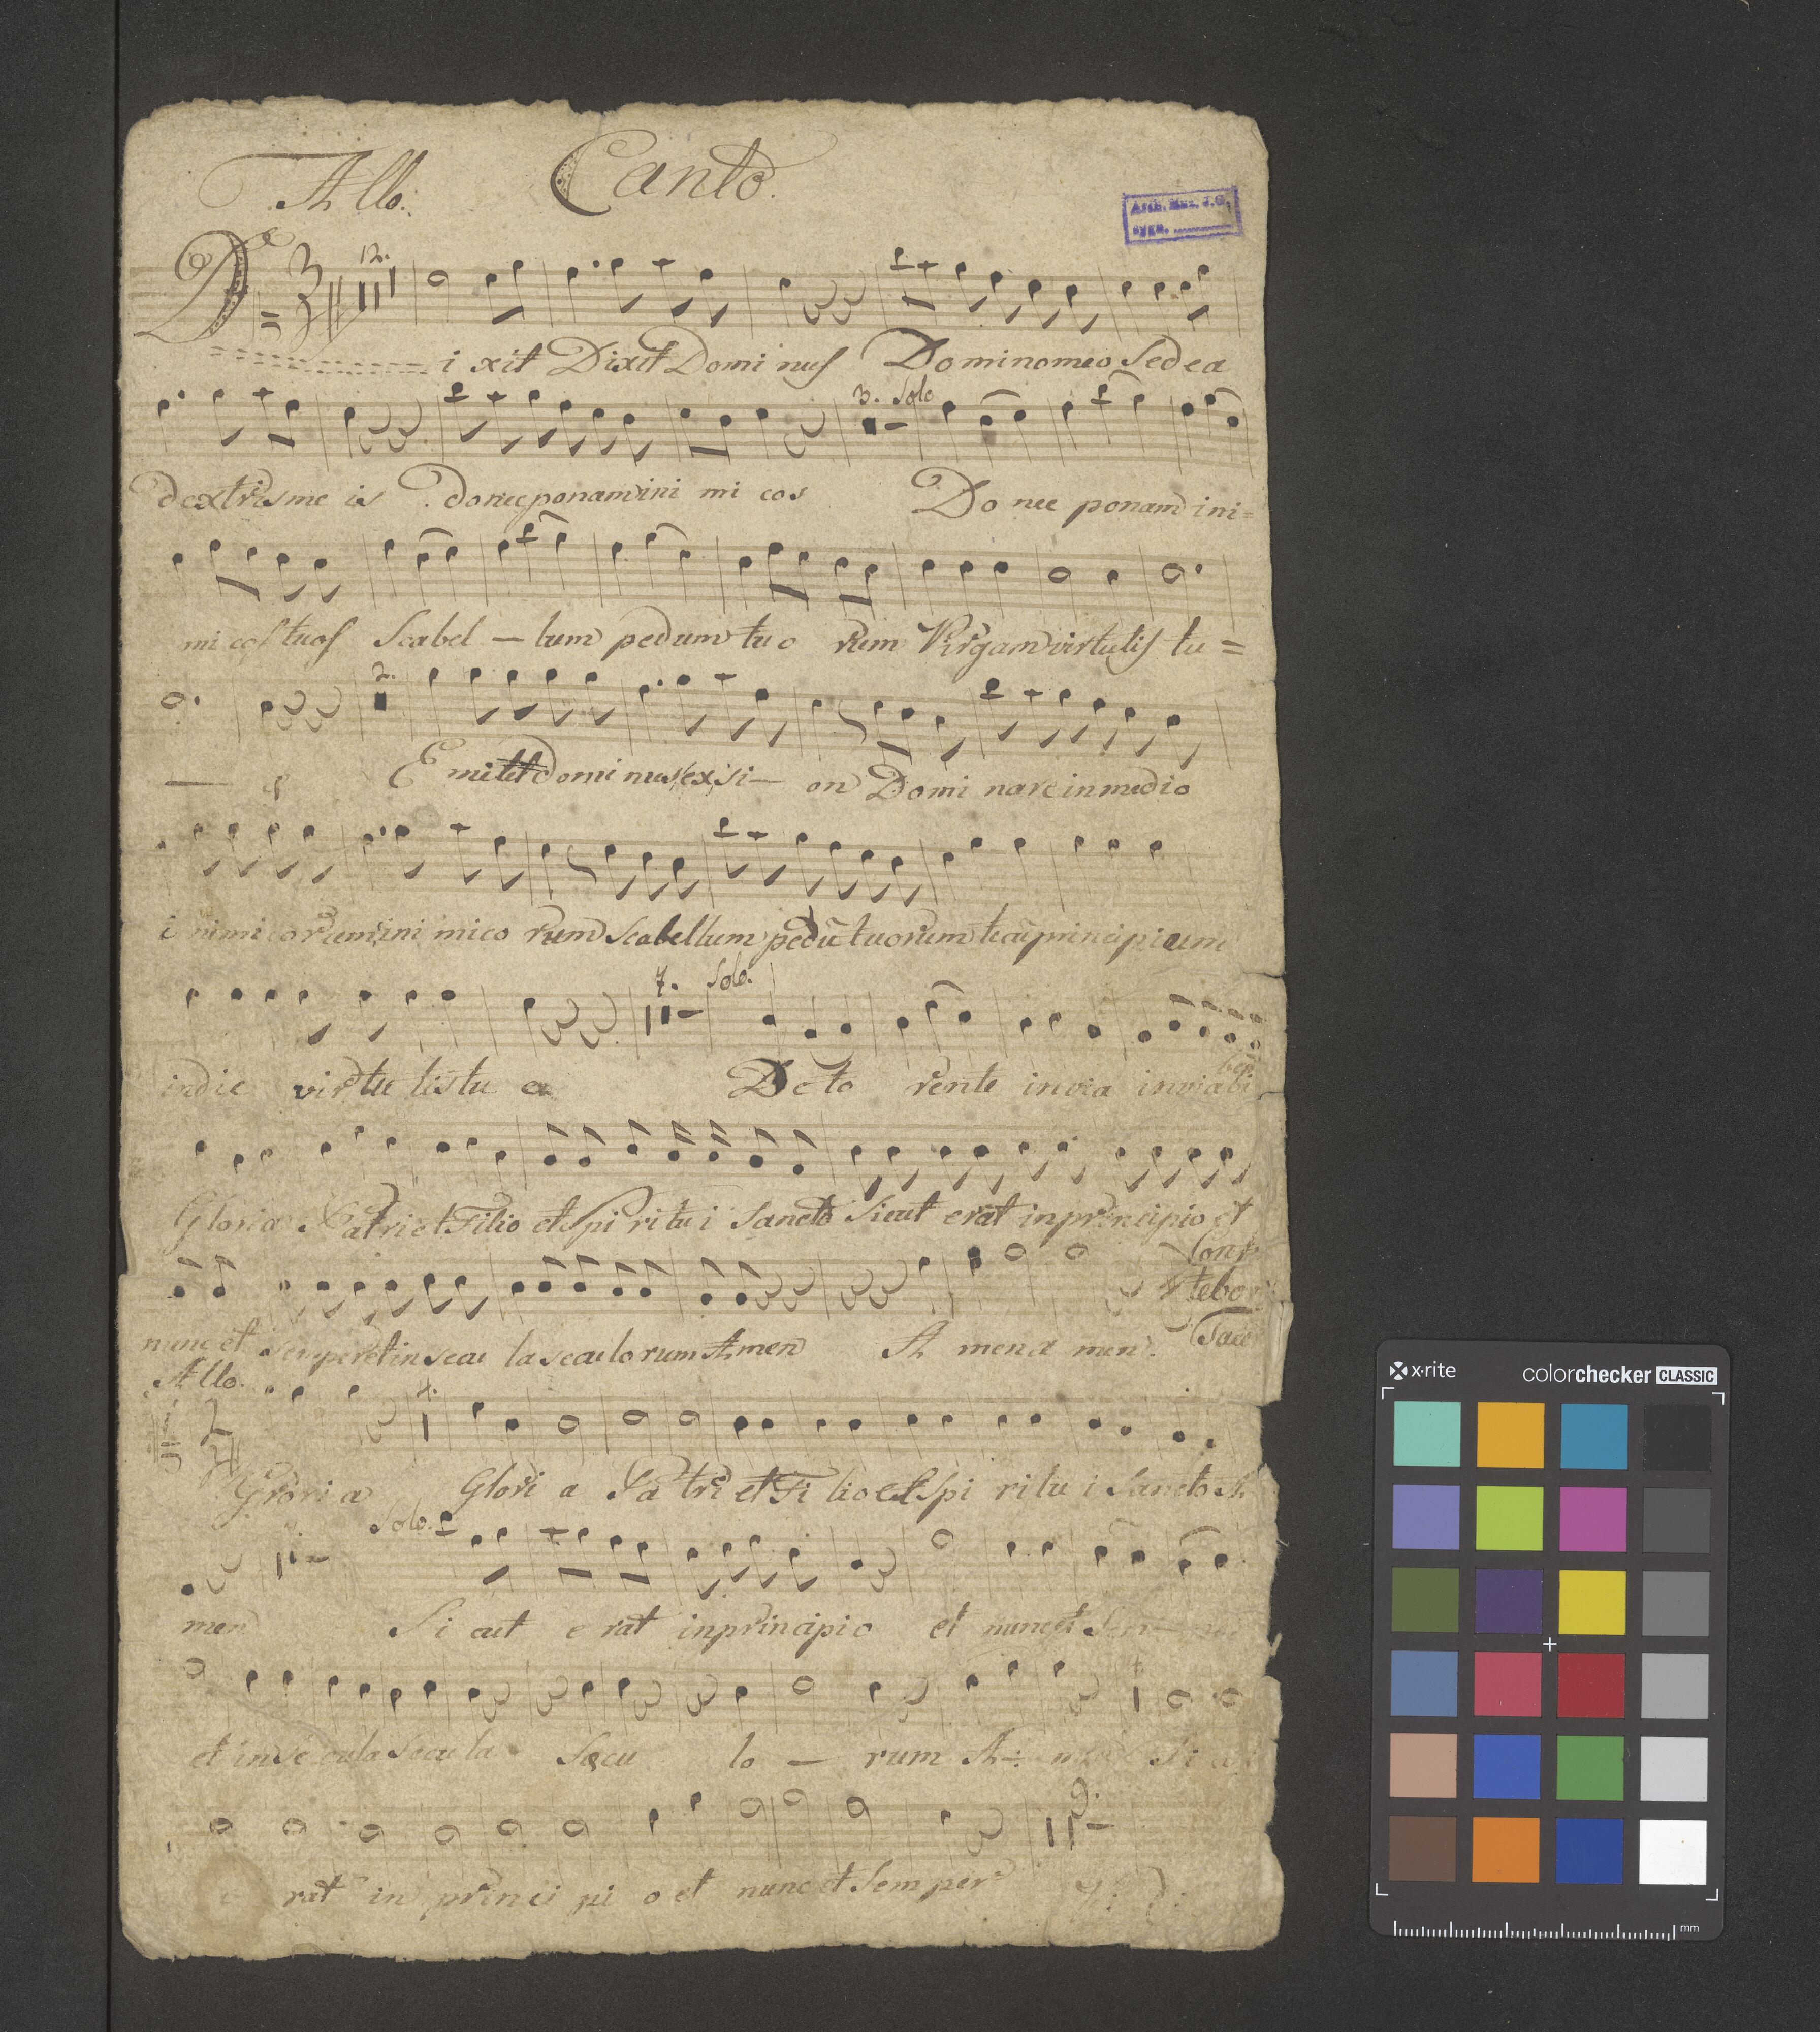 Allo. Canto.
Arch. Muz. J.G.
sygn. ............
12.
Dixit Dixit Dominus Domino meo Sede a
3. Solo
dextris me is donec ponam ini mi cos Do nec ponam ini=
mi cos tuos Scabel — lum pedum tuo rum Virgam virtutis tu =
2.
— e Emittet dominus ex si — on Domi nare in medio
i nimicorum ini mico rum scabellum pedū tuorum tecū principium
7. Solo.
in die virtu tis tu e De to rente in via in via bi
bet
Gloria Patri et Filio et Spi ritu i Sancto Sicut erat in principio et
nunc et semper et in secu la seculo rum Amen A mena men.
Confi
tebor
Tace
Allo.
4.
Gloria Glori a Pa tri et Fi lio et Spi ritu i Sancto A
Solo.
men Si cut e rat in principio et nunc et Sem
et in Se cula secu la Secu lo — rum A men Si cut
9.
e rat in princi pi o et nunc et Semper